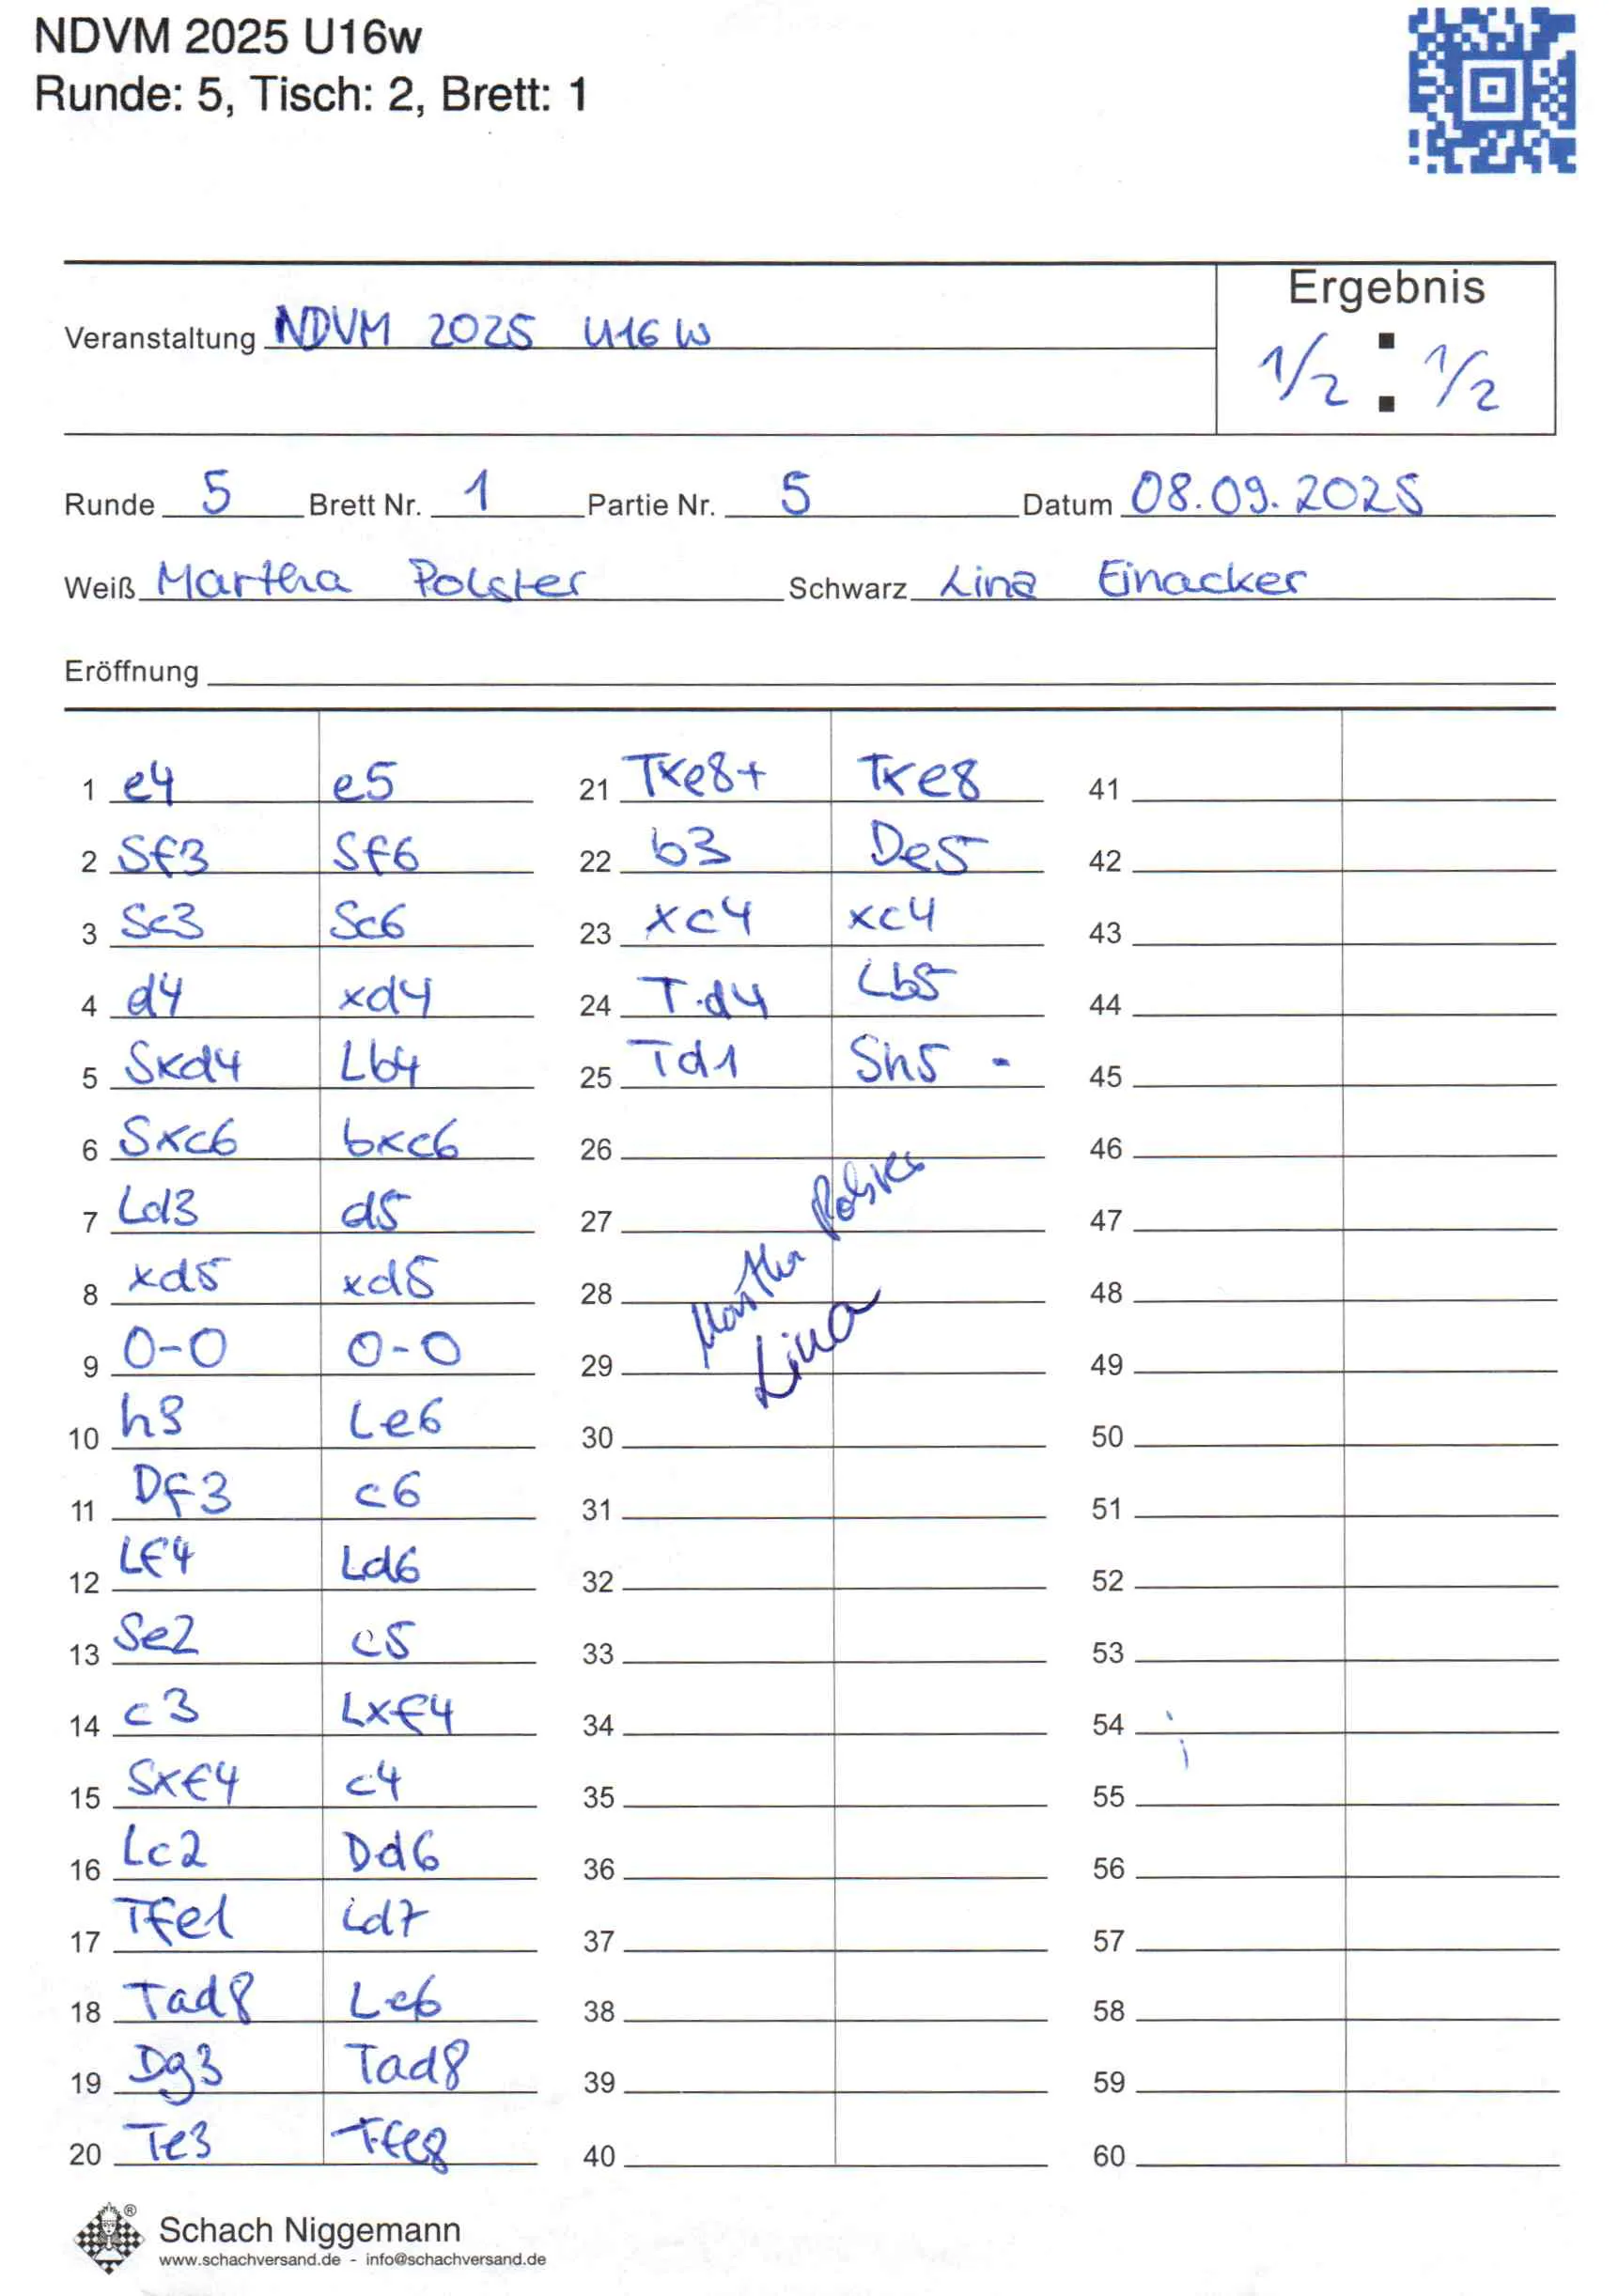 NDVM 2025 U16w
Runde: 5, Tisch: 2, Brett: 1
Ergebnis
Veranstaltung NDVM 2025 U16W
1/2 : 1/2
Runde 5 Brett Nr. 1 Partie Nr. 5 Datum 08.09.2025
Weiß Martha Polster Schwarz Lina Einacker
Eröffnung
1 e4 e5
2 Sf3 Sf6
3 Sc3 Sc6
4 d4 xd4
5 Sxd4 Lb4
6 Sxc6 bxc6
7 Ld3 d5
8 xd5 xd5
9 0-0 0-0
10 h3 Le6
11 Df3 c6
12 Lf4 Ld6
13 Se2 c5
14 c3 Lxf4
15 Sxf4 c4
16 Lc2 Dd6
17 Tfe1 Ld7
18 Tad8 Lc6
19 Dg3 Tad8
20 Te3 Tfe8
21 Txe8+ Txe8
22 b3 De5
23 xc4 xc4
24 Td4 Lb5
25 Td1 Sh5 -
26
27
28
29
Martha Polster
Lina
30
31
32
33
34
35
36
37
38
39
40
41
42
43
44
45
46
47
48
49
50
51
52
53
54
55
56
57
58
59
60
Schach Niggemann
www.schachversand.de - info@schachversand.de